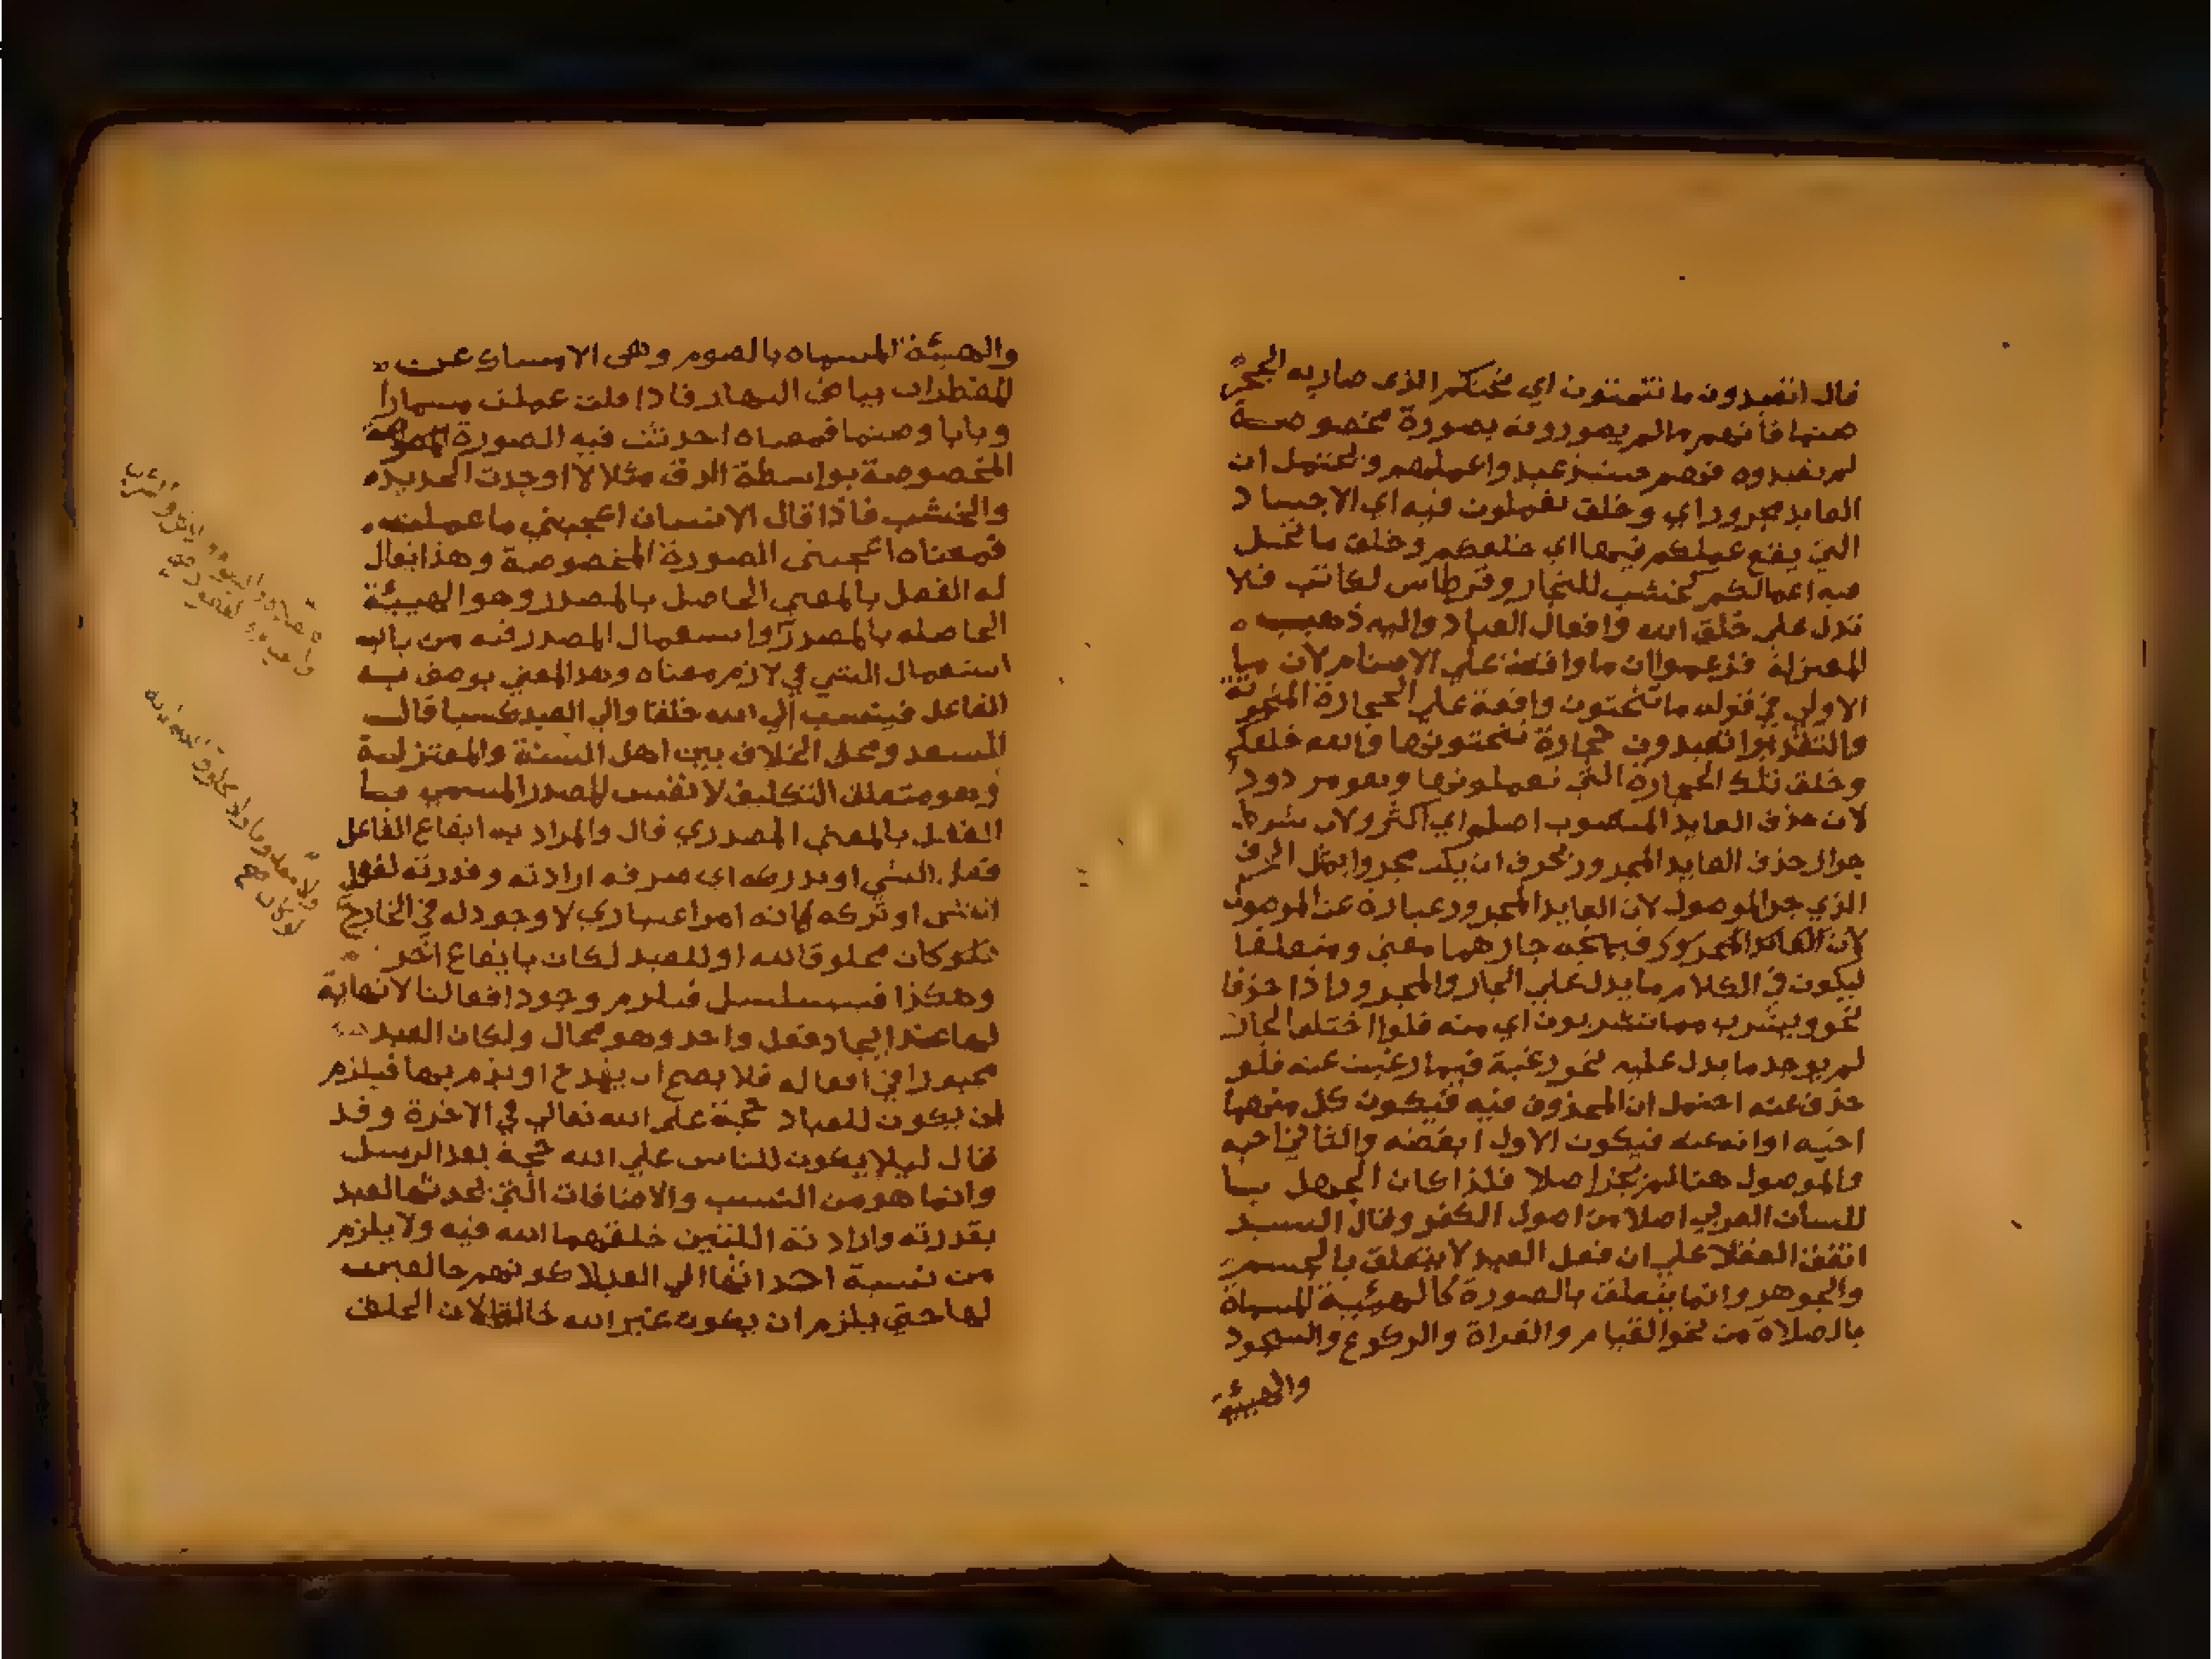 قال اتعبدون ما تنحتون اي نحتكم الذي صار به الحجر
صنما فانهم ما لم يصوروه بصورة مخصوصة
لم يعبدوه فهم حينئذ عبدوا عملهم ويحتمل ان
العايد مجرور اي وخلق تعملون فيه اي الاجساد
التي يقع عملكم فيها اي خلقكم وخلق ما تحل
فيه اعمالكم كخشب للنجار وقرطاس لكاتب فلا
تدل على خلق الله افعال العباد واليه ذهب
المعتزلة فزعموا ان ما واقعة علي الاصنام لان ما
الاولي في قوله ما تنحتون واقعة علي الحجارة المنحوتة
والتقدير اتعبدون حجارة تنحتونها والله خلقكم
وخلق تلك الحجارة التي تعملونها وهو مردود
لان حذف العايد المنصوب اصلم اي اكثر ولان شرط
جواز حذف العايد المجرور بحرف ان يكن مجرورا بمثل الحرف
الذي جر الموصول لان العايد المجرور عبارة عن الموصول
لان العائد المجرور فيتجه جارهما معني ومتعلقا
ليكون في الكلام ما يدل علي الجار والمجرور اذا حذفا
نحو ويشرب مما تشربون اي منه فلو اختلف الجار
لم يوجد ما يدل عليه نحو رغبة فيما رغبت عنه فلو
حذف عنه احتمل ان المحذوف فيه فيكون كل منهما
احبه او انه عنه فيكون الاول ابغضه والثاني احبه
والموصول هنا لم يجر اصلا فلذا كان الجهل بـا
للسان العربي اصلا من اصول الكفر وقال السيد
اتفق العقلا علي ان فعل العبد لا يتعلق بالجسم
والجوهر وانما يتعلق بالصورة كالهيئة المسماة
بالصلاة من نحو القيام والقراة والركوع والسجود
والهيئة
والهيئة المسماه بالصوم وهي الامساك عن
المفطرات بياض النهار فاذا قلت عملت مسمارا
وبابا وصنما فمعناه احدثت فيه الصورة
المخصوصة بواسطة الدق مثلا لا اوجدت الحديد
والخشب فاذا قال الانسان اعجبني ما عملته
فمعناه اعجبني الصورة المخصوصة وهذا يقال
له الفعل بالمعني الحاصل بالمصدر وهو الهيئة
الحاصله بالمصدر واستعمال المصدر فيه من باب
استعمال الشي في لازم معناه وهذا المعني يوصف به
الفاعل فينسب الي الله خلقا والي العبد كسبا قال
السعد ومحل الخلاف بين اهل السنة والمعتزلة
وهو متعلق التكليف لا نفس المصدر المسمي بـا
الفعل بالمعني المصدري قال والمراد به ايقاع الفاعل
فعل الشي او تركه اي صرفه ارادته وقدرته لفعل
الشي او تركه فانه امر اعتباري لا وجود له في الخارج
فلو كان مخلوقا لله او للعبد لكان بايقاع اخر
وهكذا فيتسلسل فيلزم وجود افعالنا لا نهاية
لها عند ايجاد فعل واحد وهو محال ولكان العبد
مجبورا في افعاله فلا يصح ان يمدح او يذم بها فيلزم
ان يكون للعباد حجة علي الله تعالي في الاخرة وقد
قال ليلا يكون للناس علي الله حجة بعد الرسل
وانما هو من النسب والاضافات التي يحدثها العبد
بقدرته وارادته اللتين خلقهما الله فيه ولا يلزم
من نسبة احداثها الي العبد كونهم خالقين
لها حتي يلزم ان يكون غير الله خالقا لان الخلق